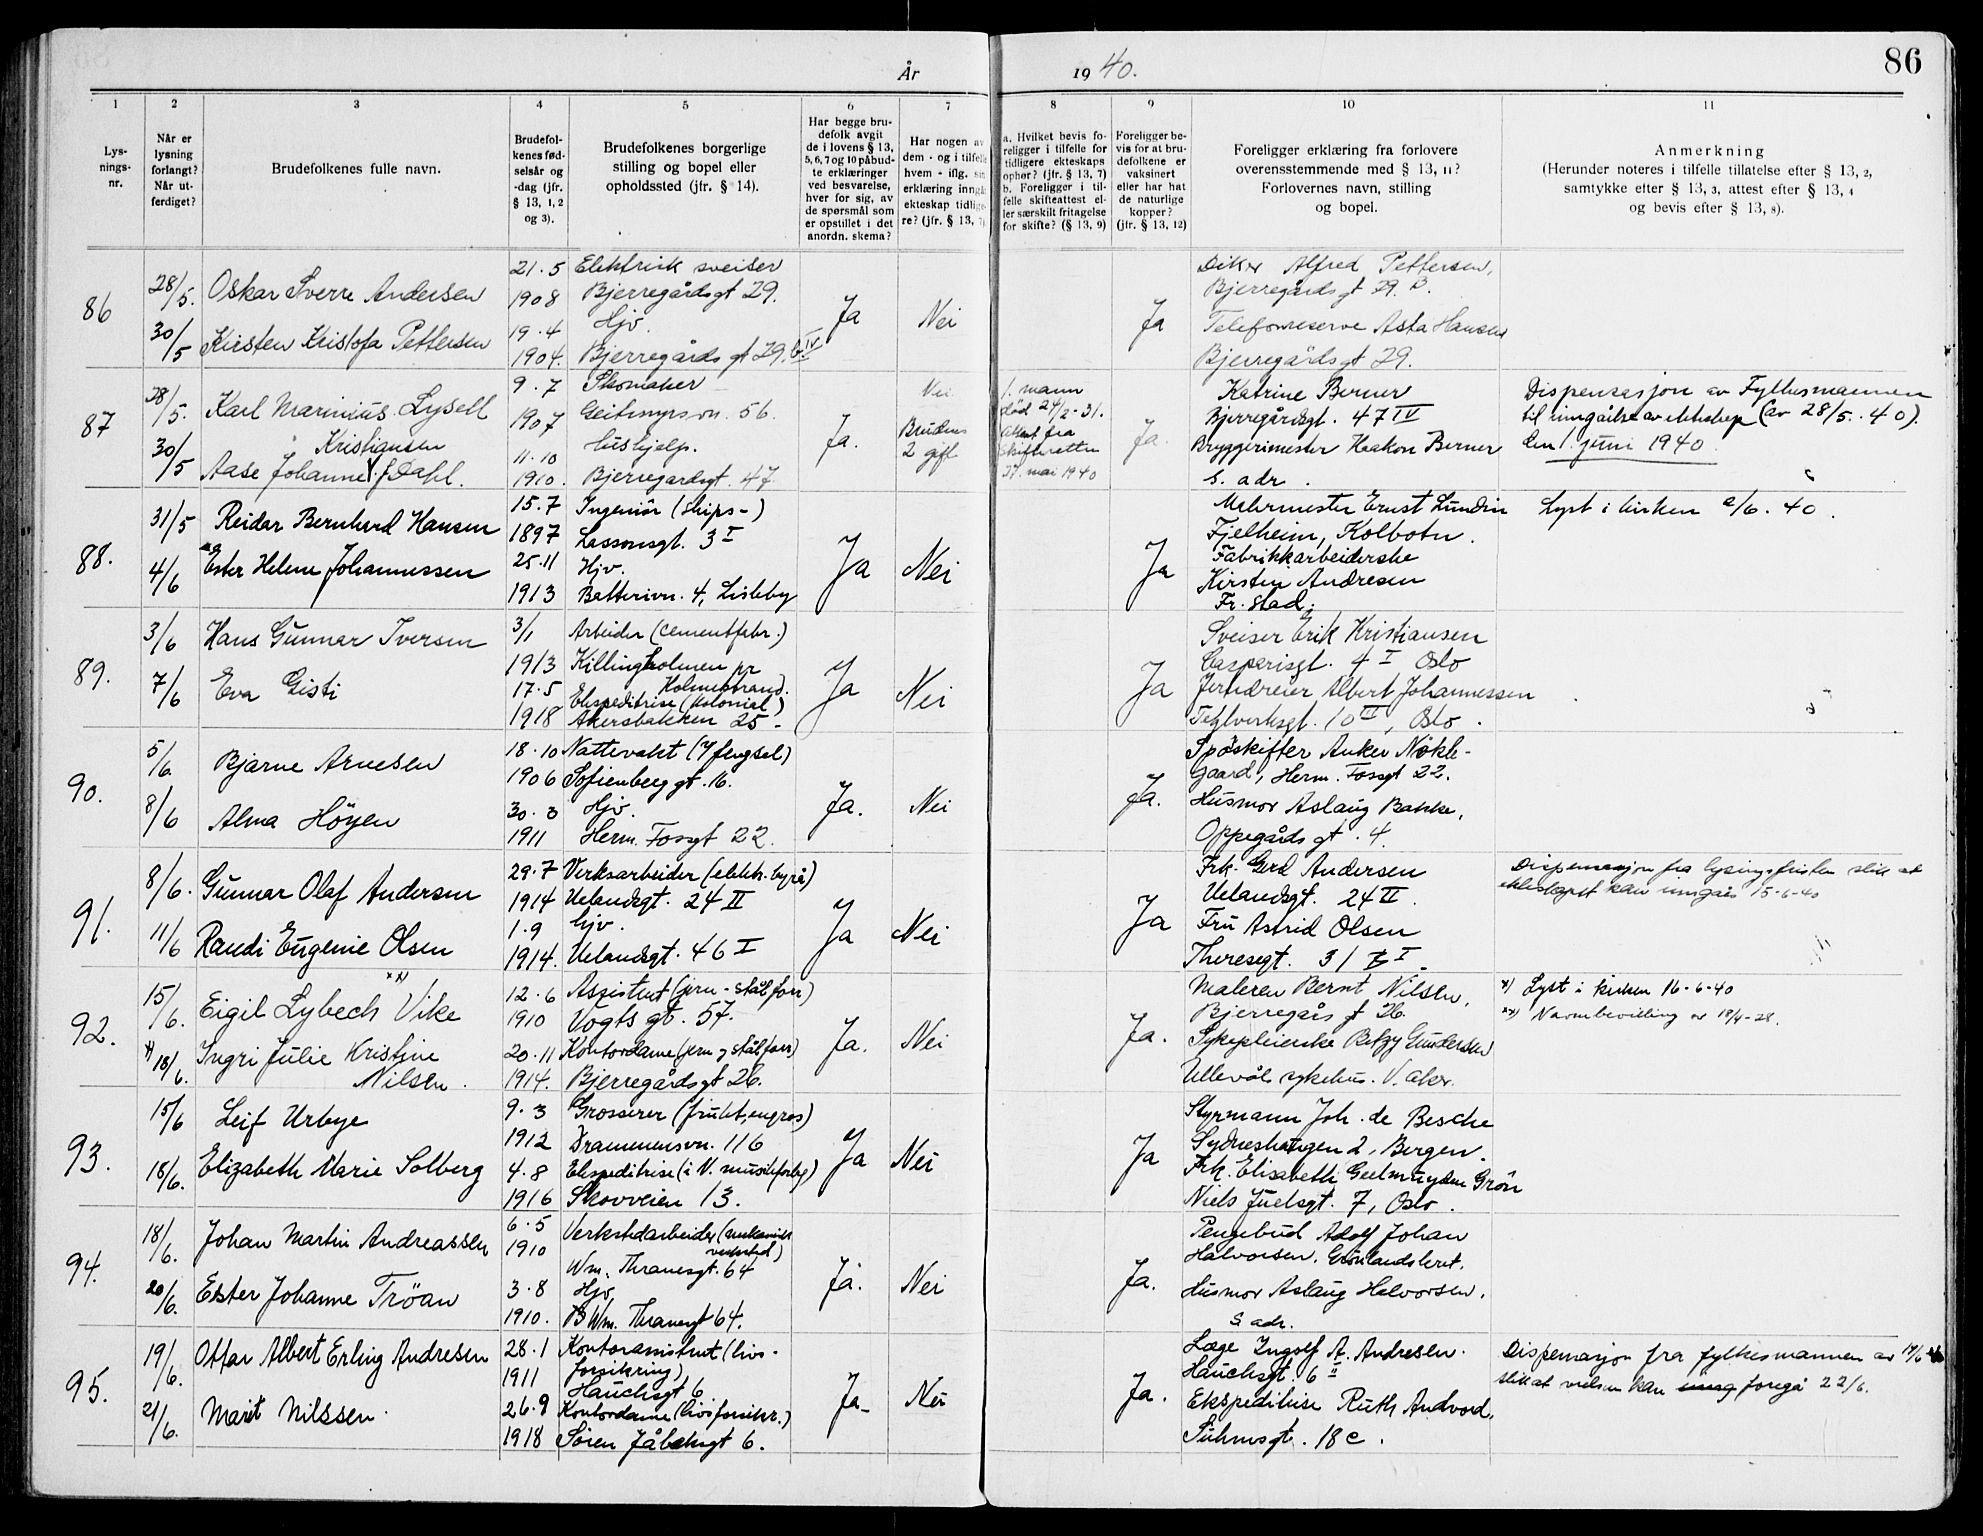 År 1940.
86
1 2 3 4 5 6 7 8 9 10 11
Lys-
nings-
nr.
Når er
lysning
forlangt?
Når ut-
ferdiget?
Brudefolkenes fulle navn.
Brudefol-
kenes fød-
selsår og
-dag (jfr.
§ 13, 1, 2
og 3).
Brudefolkenes borgerlige
stilling og bopel eller
opholdssted (jfr. § 14).
Har begge bru-
defolk avgit
de i lovens § 13,
5, 6, 7 og 10 påbud-
te erklæringer
ved besvarelse,
hver for sig, av
de spørsmål som
er opstillet i det
anordn. skema?
Har nogen av
dem - og i tilfelle
hvem - iflg. sin
erklæring inngåt
ekteskap tidlige-
re? (jfr. § 13, 7)
a. Hvilket bevis fo-
religger i tilfelle for
tidligere ekteskaps
ophør? (jfr. § 13, 7)
b. Foreligger i til-
felle skifteattest el-
ler særskilt fritagelse
for skifte? (§ 13, 9)
Foreligger be-
vis for at bru-
defolkene er
vaksinert
eller har hat
de naturlige
kopper?
(jfr. § 13, 12)
Foreligger erklæring fra forlovere
overensstemmende med § 13, 11?
Forlovernes navn, stilling
og bopel.
Anmerkning
(Herunder noteres i tilfelle tillatelse efter § 13, 2,
samtykke efter § 13, 3, attest efter § 13, 4
og bevis efter § 13, 8).
86
28/5.
30/5
Oskar Sverre Andersen
Kirsten Kristofa Pettersen
21.5
1908
19.4
1904.
Elektrisk sveiser
Bjerregårdsgt 29.
Hjv.
Bjerregårdsgt 29. b IV
Ja
Nei
Ja
Alfred Pettersen,
Bjerregårdsgt 29. B.
Telefonreserve Asta Hansen
Bjerregårdsgt 29.
87
28/5.
30/5
Karl Marinius Lysell
Kristiansen
Aase Johanne f. Dahl.
9.7
1907
11.10
1910.
Skomaker
Geitemyrsvn. 56.
Hushjelp.
Bjerregardsgt. 47
Ja.
Nei
Bruden
2 gift
1. mann
død 24/2-31.
attest fra
skifteretten
27. mai 1940
Ja.
Katrine Berner
Bjerregårdsgt. 47 IV
Bryggerimester Haakon Berner
s. adr.
Dispensasjon av Fylkesmannen
til inngåelse av ekteskap (av 28/5. 40).
den 1. juni 1940.
88.
31/5
4/6
Reidar Bernhard Hansen
Ester Helene Johannessen
15.7
1897
25.11
1913
Ingeniör (skips-)
Lassonsgt. 3 I
Hjv.
Batterivn. 4, Lisleby
Ja
Nei
Ja
Ernst Lundin
Fjelheim, Kolbotn.
Fabrikkarbeiderske
Kirsten Andresen
Fr. stad.
Lyst i kirken 2/6. 40.
89.
3/6
7/6
Hans Gunnar Iversen
Eva Gisti
3/1
1913
17.5
1918
Arbeider (cementfabr.)
Killingholmen pr
Holmestrand.
Ekspeditrise (kolonial)
Akersbakken 25 -
Ja
Nei
Ja
Sveiser Erik Kristiansen
Casparisgt. 4 I Oslo
Jerndreier Albert Johannessen
Teglverksgt. 10 III, Oslo.
90.
5/6.
8/6
Bjarne Arnesen
Alma Höyen
18.10
1906
30.3
1911
Nattevakt ( fengsel)
Sofienberggt. 16.
Hjv.
Herm. Fossgt 22.
Ja.
Nei
Ja.
Sporskifter Anker Nökle-
gaard, Herm. Fossgt 22.
Husmor Aslaug Bakke,
Oppegårds gt. 4.
91.
8/6.
11/6
Gunnar Olaf Andersen
Randi Eugenie Olsen
29.7
1914
1.9
1914.
Verksarbeider (elektr. byrå)
Uelandsgt. 24 II
Hjv.
Uelandsgt. 46 I
Ja
Nei
Ja
Frk. Gerd Andersen
Uelandsgt. 24 II.
Fru Astrid Olsen
Theresegt. 31 I.
Dispensasjon fra lysingsfristen slik at
ekteskapet kan inngås 15-6-40
92.
15/6.
x) 18/6.
Eigil Lybech xx) Vike
Ingri Julie Kristine
Nilsen.
12.6
1910
20.11
1914.
Assistent (jern-stål forr)
Vogts gt. 57.
Kontordame (jern og stål forr)
Bjerregårdsgt 26.
Ja.
Nei
Ja.
Maleren Bernt Nilsen,
Bjerregårs gt 26.
Sykepleierske Betzy Gundersen
Ullevål sykehus. V. aker.
x) Lyst i kirken 16-6-40
xx) Navnebevilling av 18/4-28.
93.
15/6
18/6.
Leif Urbye
Elizabeth Marie Solberg
9.3
1912
4.8
1916
Grosserer (frukt, engros)
Drammensvn. 116
Ekspeditrise (i N. musikforlag)
Skovveien 13.
Ja
Nei
Ja
Styrmann Joh. de Besche
Sydneshaugen 2, Bergen.
Frk. Elisabeth Geelmuyden Grön
Niels Juelsgt. 7, Oslo.
94.
18/6.
20/6.
Johan Martin Andreassen
Ester Johanne Tröan
6.5
1910
3.8
1910.
Verkstedarbeider (mekanisk
verksted)
Wm. Thranesgt. 64
Hjv.
Wm. Thranesgt 64.
Ja.
Nei
Ja.
Pengebud Adolf Johan
Halvorsen. Grönlandsleret.
Husmor Aslaug Halvorsen.
S. adr.
95.
19/6.
21/6.
Ottar Albert Erling Andresen
Marit Nilssen.
28.1
1911
26.9
1918
Kontorassistent (livs-
forsikring)
Hauchsgt 6
Kontordame (livsforsikr.)
Sören Jåbæksgt 6.
Ja-
Nei
Ja.
Læge Ingolf A. Andresen.
Hauchsgt. 6 II
Ekspeditrise Ruth Andvord,
Suhmsgt. 18 c.
Dispensasjon fra fylkesmannen av 19/6 40
slik at vielsen kan foregå 22/6.